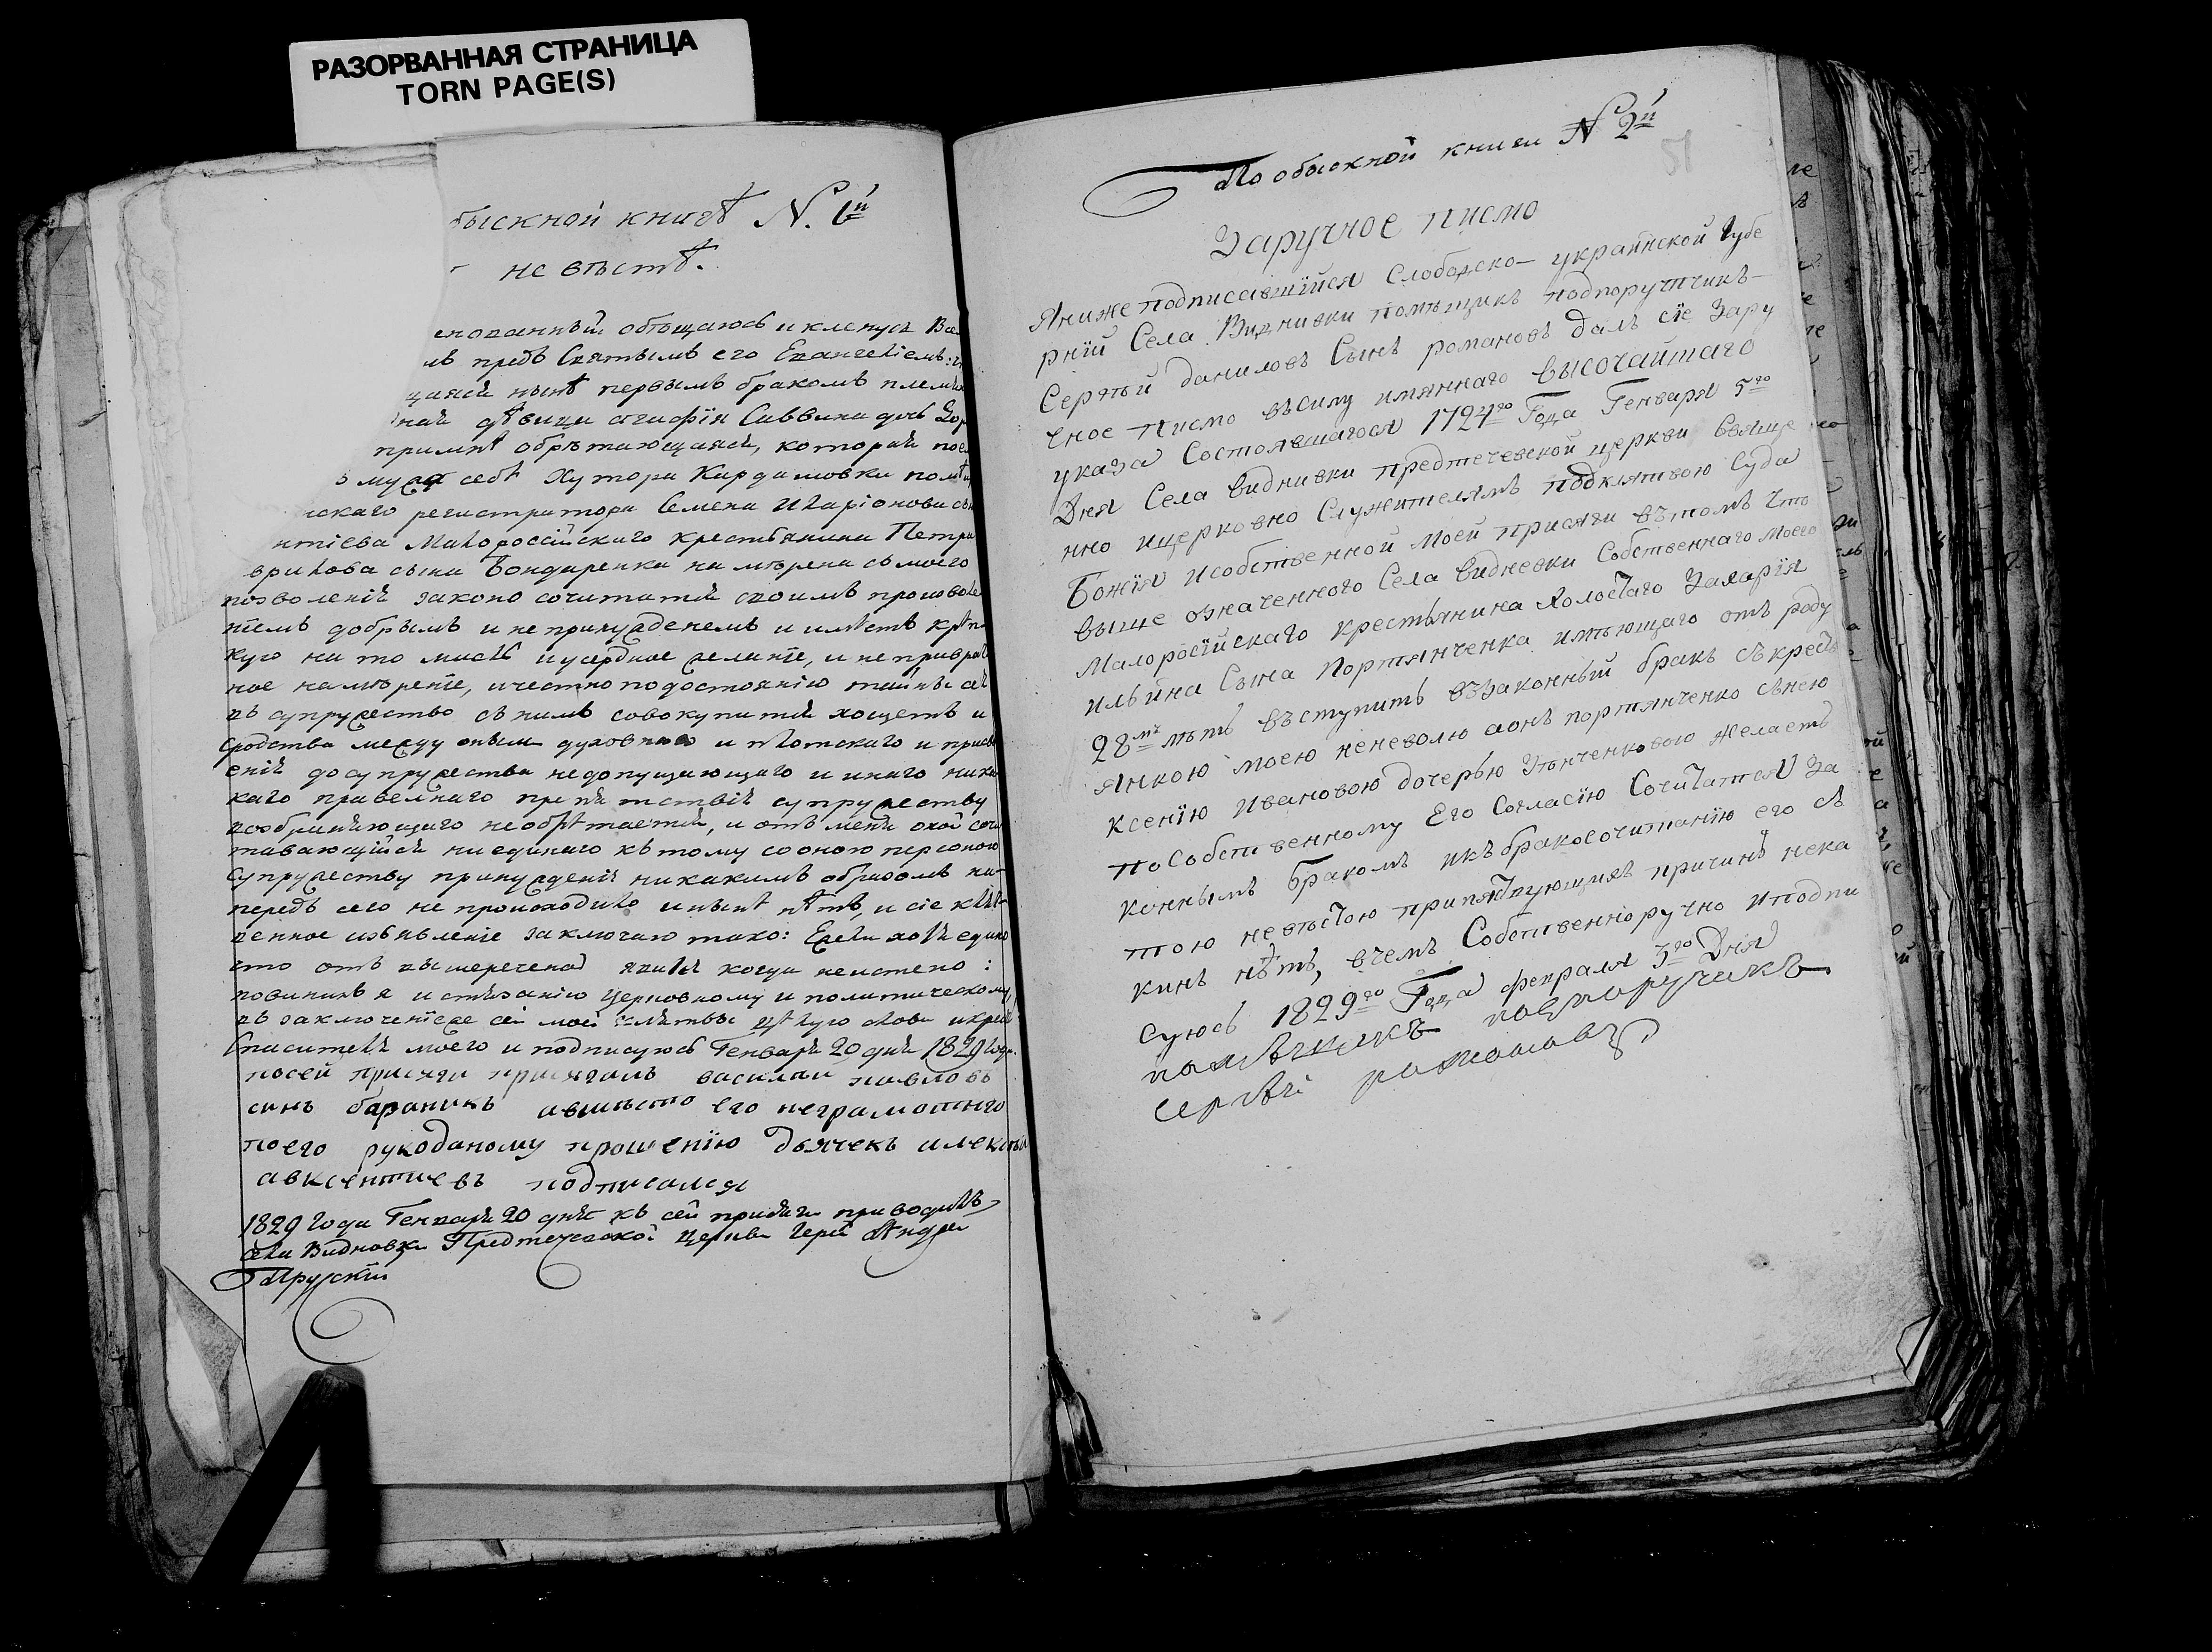 РАЗОРВАННАЯ СТРАНИЦА
TORN PAGE(S)
быскной книгѣ N. 6й
невѣстѣ.
обѣщаюсь и кленусь
предъ Святымъ его Евангеліемъ:
нынѣ первымъ бракомъ
дѣвица агафія Саввина дочь
обрѣтающаяся, которая
себѣ Хутора Кардамовки
регистратора Семена Иларіонова
Малоросійскаго крестьянина Петра
сына Бондаренка намѣрена съ моего
позволенія законо сочитатся своимъ произволе
ніемъ добрымъ и непринужденемъ и имѣетъ крѣп
кую на то мысль и усердное желаніе, и непривра
ное намѣреніе, и честно по достоянію тайны сея
въ супружество съ нимъ совокупится хощетъ и
сродства между оными духовнаго и плотскаго и
енія до супружества недопущающаго и инаго ника
каго правелнаго препятствія супружеству
возбраняющаго необрѣтается, и отъ мене оной соче
тавающійся ни единаго къ тому со оною персоною
супружеству принужденія никакимъ образомъ на
передъ сего не происходило и нынѣ нѣтъ, и сіе клят
венное изъявленіе заключаю тако: Ежели хотя едино
что отъ вышереченна явится когда неистено:
повиненъ я истязанію церковному и политическому,
въ заключеніе же сей моей клятвы цѣлую слова и крестъ
Спасителя моего и подписуюсь Генваря 20 дня 1829 года.
посей присяги присягалъ василий павловъ
синъ бараникъ авместо его неграмотнго
поего рукоданому прошенїю дьячекъ алексѣй
авксентиевъ подписался
1829 года Генваря 20 дня къ сей присяги приводилъ
села Видновки Предтечевской Церкви Іерей Андрей
Прускій
По обыскной книги N 2й
51
Заручное писмо
Яниже подписавшїйся Слободско-украинской Губе
рнїи Села Виднивки помѣщикъ подпоручтчикъ-
Сергѣй даниловъ Сынъ романовъ далъ сїе Зару
чное писмо въсилу имяннаго высочайшаго
указа Состоявшагося 1724го Года Генваря 5го
Дня Села виднивки предтечевской церкви Свяще
нно ицерковно Служителямъ подклятвою Суда
Божїя исобственной моей присяги вътомъ что
выще означенного Села видневки Собственнаго моего
Малоросїйскаго крестьянина Холостаго Захарїя
ильина Сына Портянченка имѣющаго отъ роду
28мъ лѣтъ въступить въ законный бракъ съ крест
янкою моею неневолю аонъ портянченко сънею
ксенїю Ивановою дочерью Желаетъ
по Собственному Его Согласїю Сочитатся За
коннымъ бракомъ икъ бракосочитанїю его съ
тою невѣстою припятвующихъ причинъ нека
кихъ нѣтъ, вчемъ Собственноручно иподпи
суюсь 1829го Года февраля 3го Дня
памѣщикъ подпоручикъ
Сергѣй романовъ